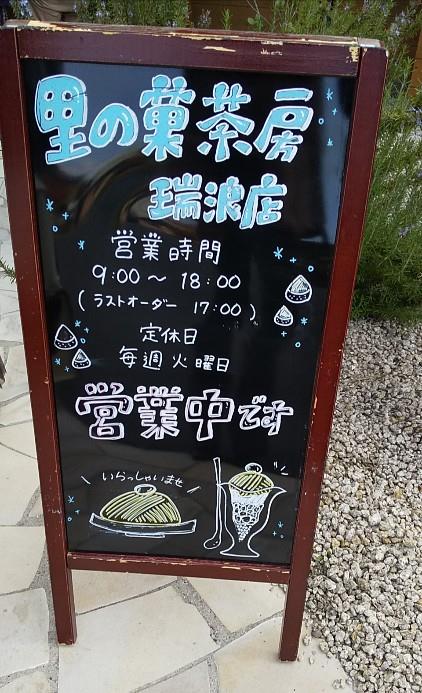 里の菓茶房
瑞浪店
営業時間
9:00～18:00
(ラストオーダー 17:00)
定休日
毎週火曜日
営業中です
いらっしゃいませ